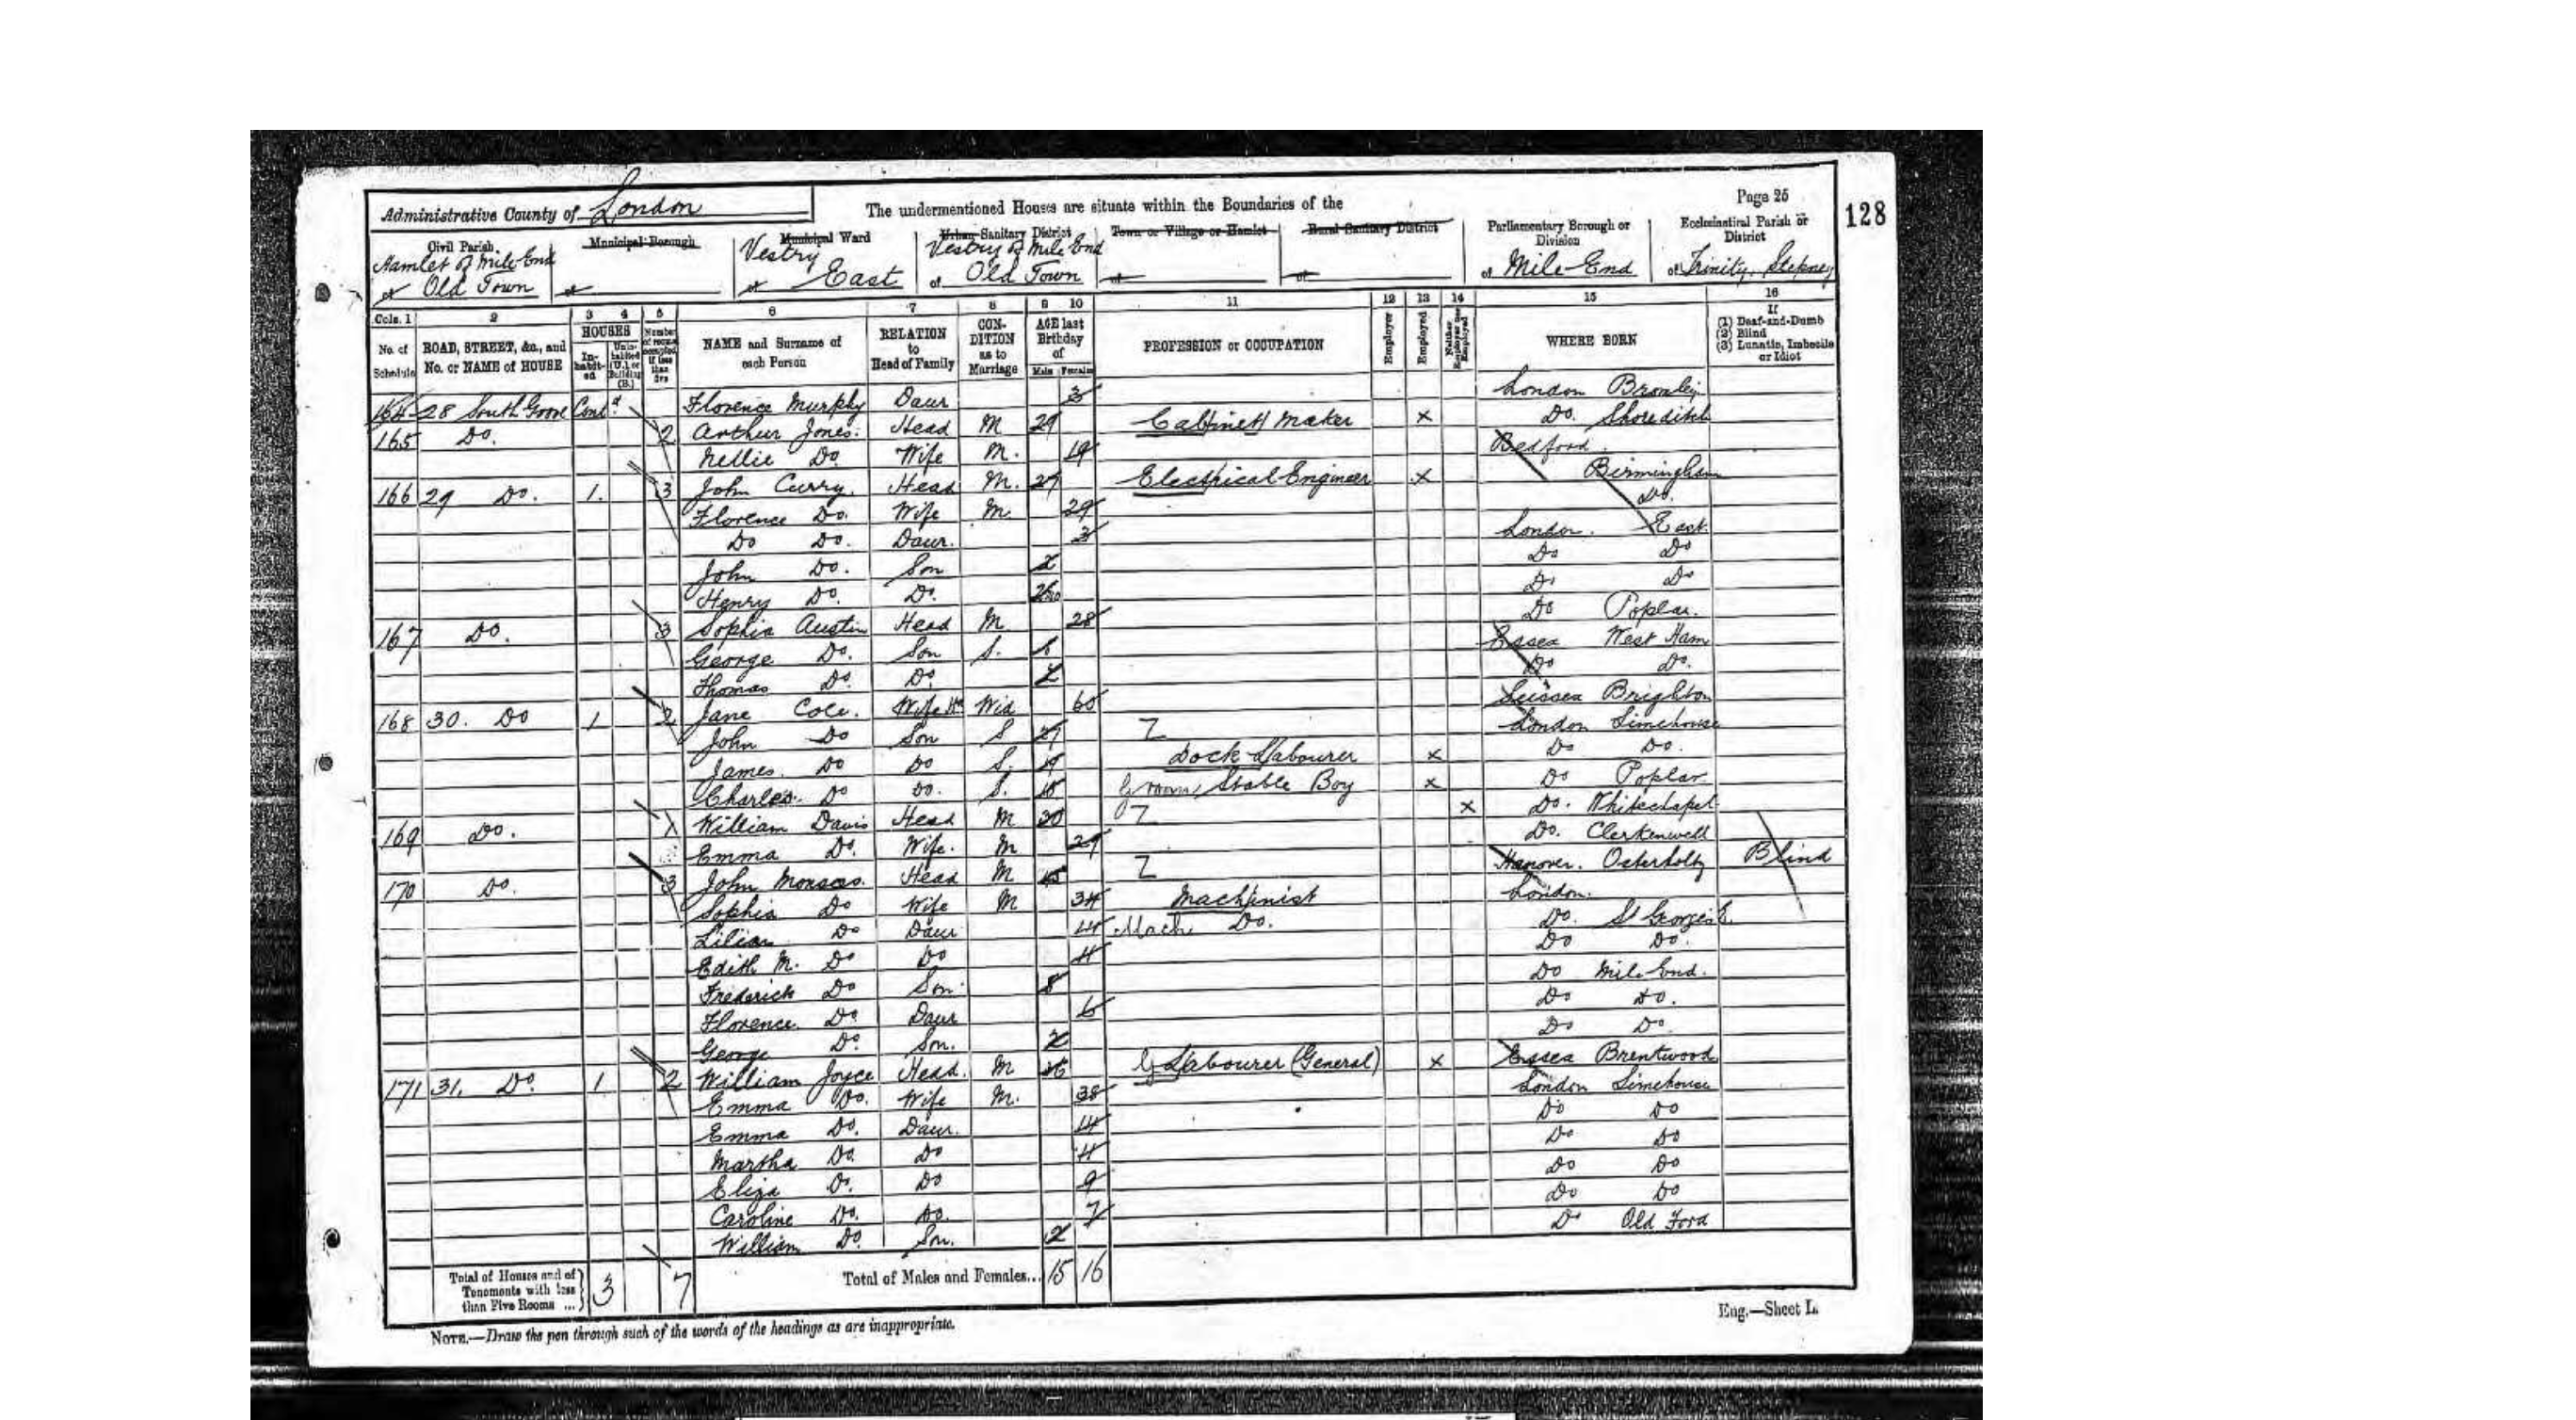 Page 25
128
Administrative County of London
The undermentioned Houses are situate within the Boundaries of the
Civil Parish
Hamlet of Mile End
of Old Town
Municipal Borough
of
Municipal Ward
Vestry
of East
Urban Sanitary District
Vestry of Mile End
of Old Town
Town or Village or Hamlet
of
Rural Sanitary District
of
Parliamentary Borough or Division
of Mile End
Ecclesiastical Parish or District
of Trinity, Stepney
Cols. 1 2 3 4 5 6 7 8 9 10 11 12 13 14 15 16
No. of Schedule
ROAD, STREET, &c., and No. or NAME of HOUSE
HOUSES
Inhabited
Uninhabited (U.) or Building (B.)
Number of rooms occupied if less than five
NAME and Surname of each Person
RELATION to Head of Family
CONDITION as to Marriage
AGE last Birthday of
Male Females
PROFESSION or OCCUPATION
Employer
Employed
Neither Employer nor Employed
WHERE BORN
If
(1) Deaf-and-Dumb
(2) Blind
(3) Lunatic, Imbecile or Idiot
164 28 South Grove Contd Florence Murphy Daur 3 London Bromley
165 Do. 2 Arthur Jones Head M 29 Cabinet Maker x Do. Shoreditch
Nellie Do. Wife M. 19 Bedford
166 29 Do. 1. 3 John Curry. Head M. 27 Electrical Engineer x Birmingham
Florence Do. Wife M. 29 Do.
Do Do. Daur. 3 London. East
John Do. Son 2 Do Do
Henry Do. Do. Do Do
167 Do. 3 Sophia Austin Head M 28 Do Poplar.
George Do. Son S. Essex West Ham
Thomas Do. Do. 2 Do Do.
168 30. Do 1 2 Jane Cole. Wid 60 Sussex Brighton
John Do Son S 21 London Limehouse
James. Do Do S. 19 Dock Labourer x Do Do.
Charles. Do Do. S. 15 Groom Stable Boy x Do Poplar
169 Do. 1 William Davis Head M 30 x Do. Whitechapel
Emma Do. Wife. M 29 Do. Clerkenwell
170 Do. 3 John Head M 45 Hanover. Osterholtz Blind
Sophia Do Wife M 34 Machinist London.
Lilian Do Daur 14 Mach Do. Do. St Georges E.
Edith M. Do Do 11 Do Do.
Frederick Do Son 8 Do Mile End.
Florence. Do Daur 6 Do Do.
George Do. Son. 2 Do Do.
171 31. Do. 1 2 William Joyce Head. M 36 G Labourer (General) x Essex Brentwood
Emma Do. Wife M. 38 London Limehouse
Emma Do. Daur. 14 Do Do
Martha Do. Do 11 Do Do
Eliza Do. Do 9 Do Do
Caroline Do. Do. 7 Do Do
William Do. Son. 2 Do Old Ford
Total of Houses and of Tenements with less than Five Rooms ... 3 7 Total of Males and Females... 15 16
Eng.—Sheet L.
NOTE.—Draw the pen through such of the words of the headings as are inappropriate.